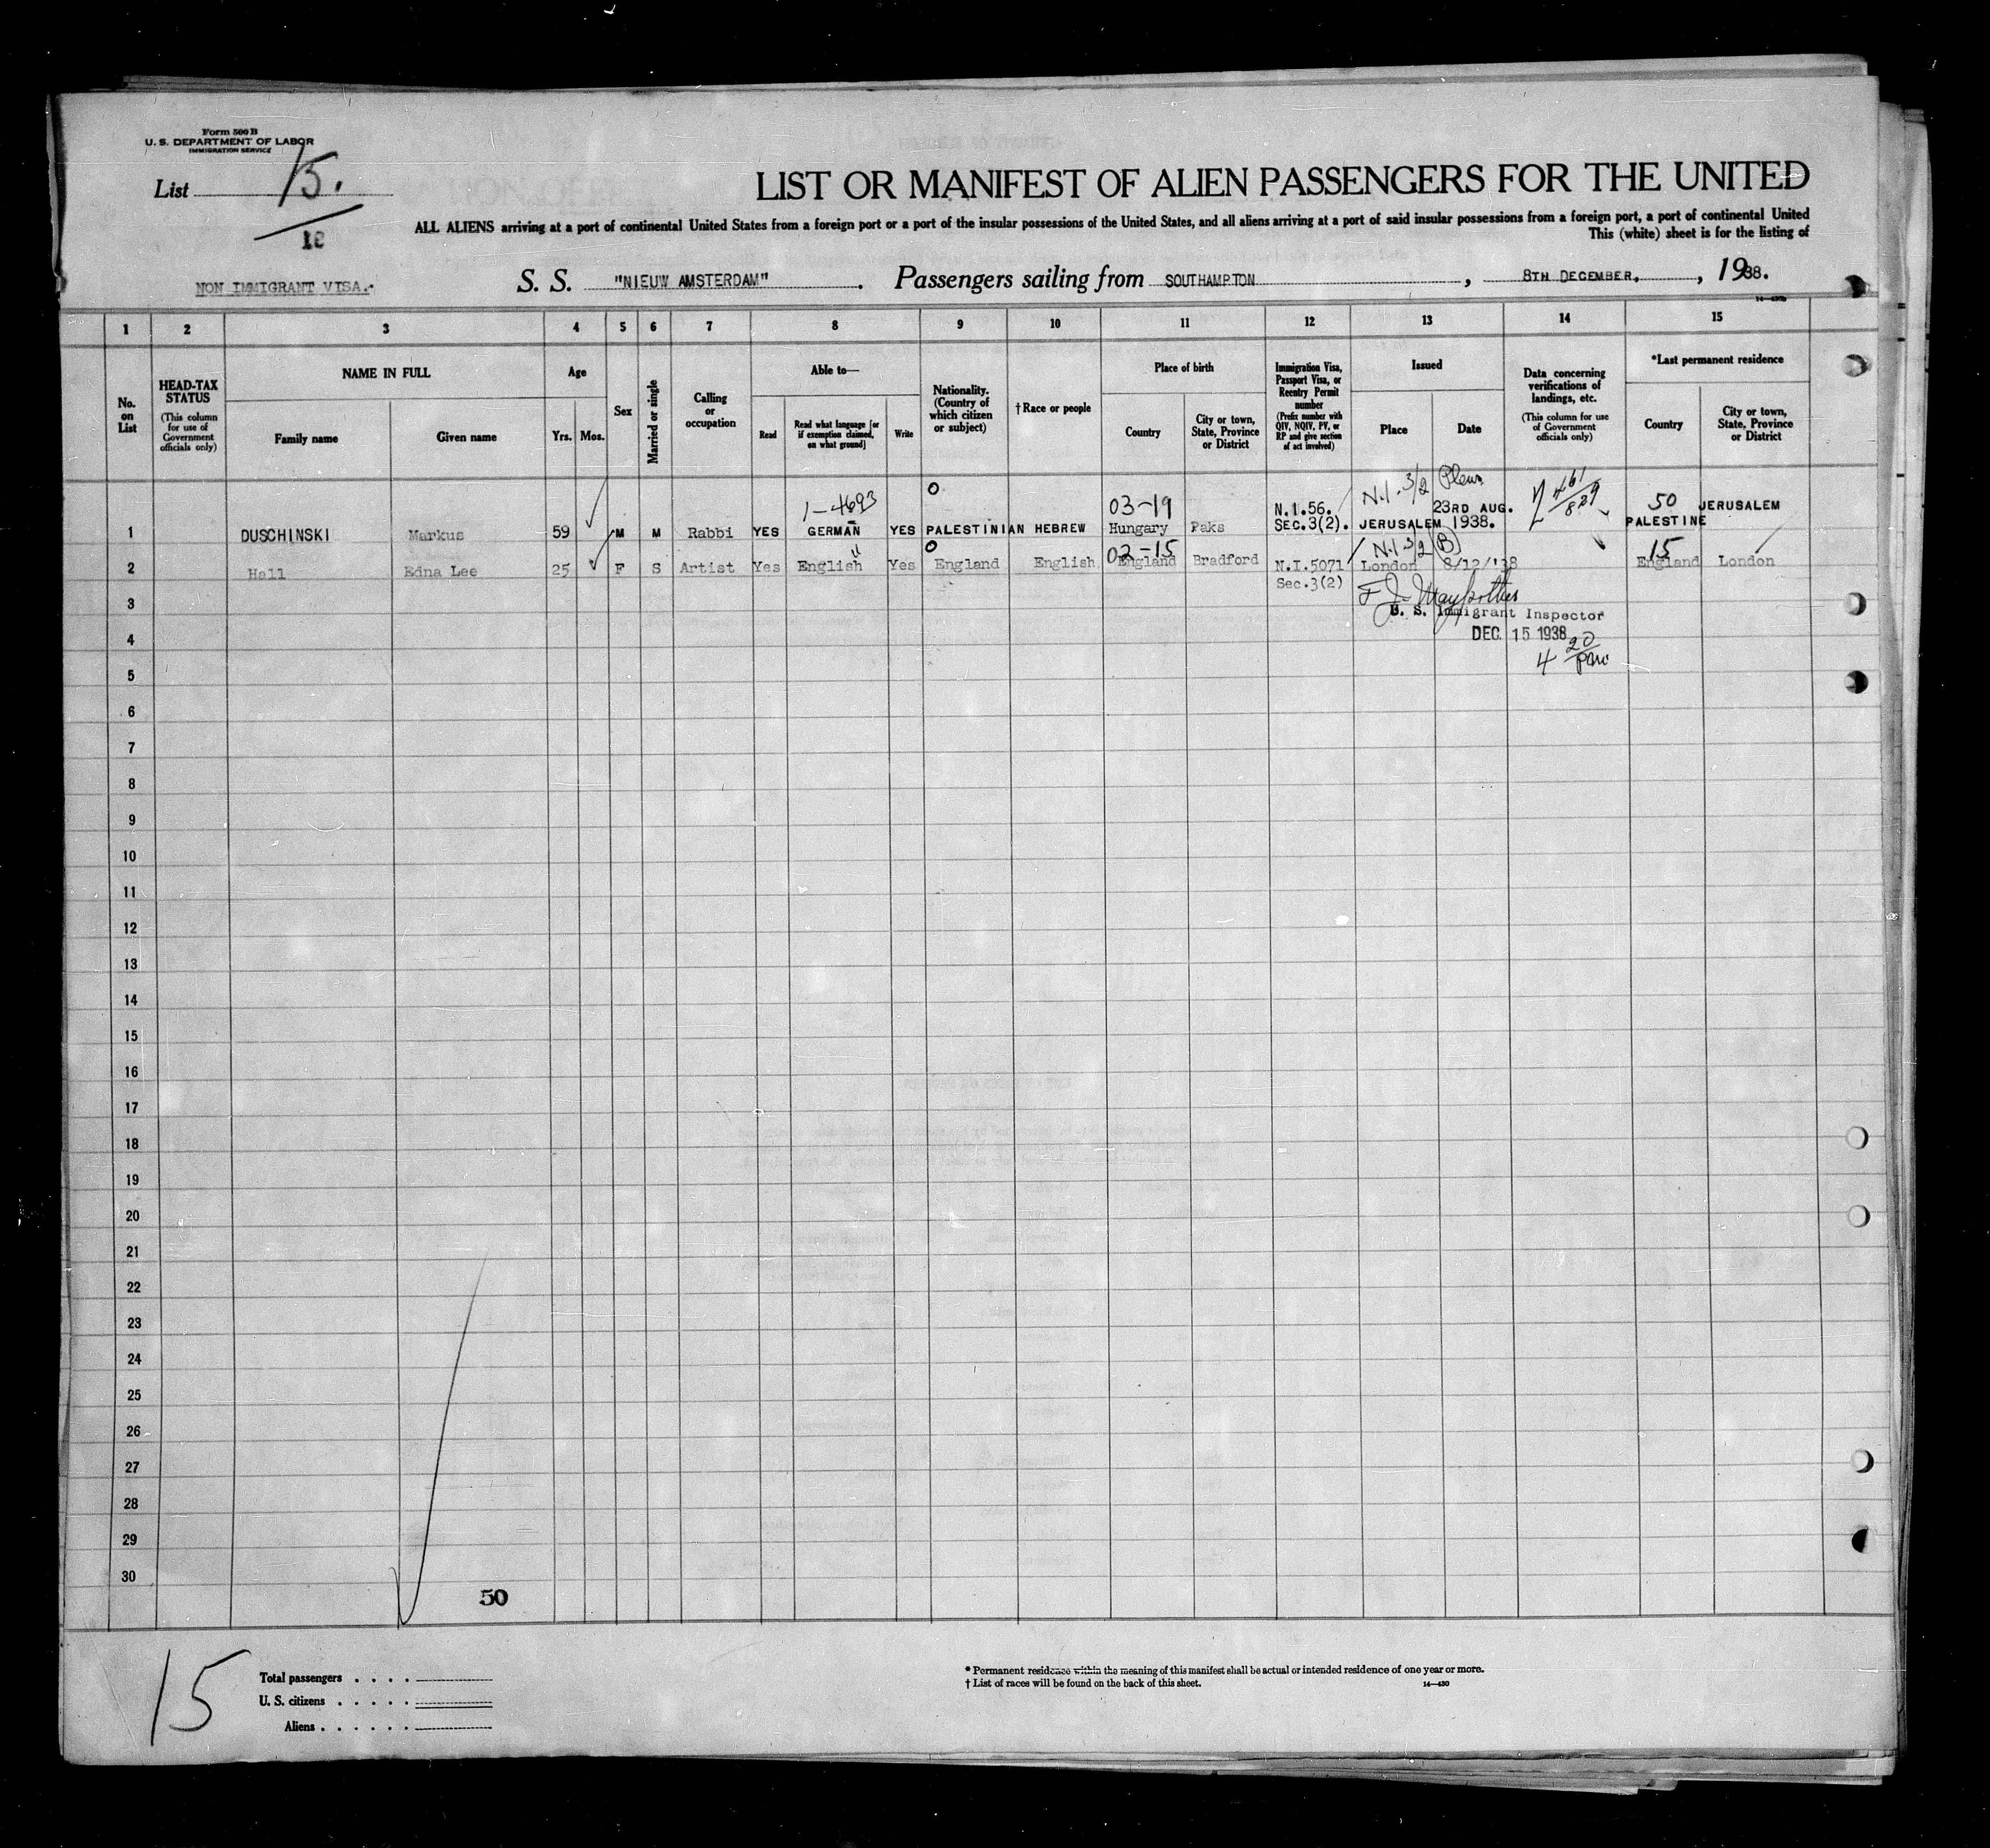 Form 500 B
U. S. DEPARTMENT OF LABOR
IMMIGRATION SERVICE
List 15.
10
LIST OR MANIFEST OF ALIEN PASSENGERS FOR THE UNITED
ALL ALIENS arriving at a port of continental United States from a foreign port or a port of the insular possessions of the United States, and all aliens arriving at a port of said insular possessions from a foreign port, a port of continental United
This (white) sheet is for the listing of
NON IMMIGRANT VISA.
S. S. "NIEUW AMSTERDAM". Passengers sailing from SOUTHAMPTON, 8TH DECEMBER, , 1938.
1 2 3 4 5 6 7 8 9 10 11 12 13 14 15
No. on List
HEAD-TAX STATUS (This column for use of Government officials only)
NAME IN FULL
Family name Given name
Age
Yrs. Mos.
Sex
Married or single
Calling or occupation
Able to—
Read
Read what language [or if exemption claimed, on what ground]
Write
Nationality. (Country of which citizen or subject)
† Race or people
Place of birth
Country
City or town, State, Province or District
Immigration Visa, Passport Visa, or Reentry Permit number (Prefix number with QIV, NQIV, PV, or RP and give section of act involved)
Issued
Place Date
Data concerning verifications of landings, etc. (This column for use of Government officials only)
*Last permanent residence
Country
City or town, State, Province or District
O 1-4693 03-19 N.I. 3/2 461/829 50
1 DUSCHINSKI Markus 59 M M Rabbi YES GERMAN YES PALESTINIAN HEBREW Hungary Paks N.I.56. SEC.3(2). JERUSALEM 23RD AUG. 1938. PALESTINE JERUSALEM
O 02-15 N.I 3/2 (B) 15
2 Hall Edna Lee 25 F S Artist Yes English Yes England English England Bradford N.I.5071 Sec.3(2) London 8/12/'38 England London
3
U. S. Immigrant Inspector
4 DEC. 15 1938
4 20 pm
5
6
7
8
9
10
11
12
13
14
15
16
17
18
19
20
21
22
23
24
25
26
27
28
29
30
50
15
Total passengers . . . .
U. S. citizens . . . . .
Aliens . . . . . .
* Permanent residence within the meaning of this manifest shall be actual or intended residence of one year or more.
† List of races will be found on the back of this sheet.
14—430